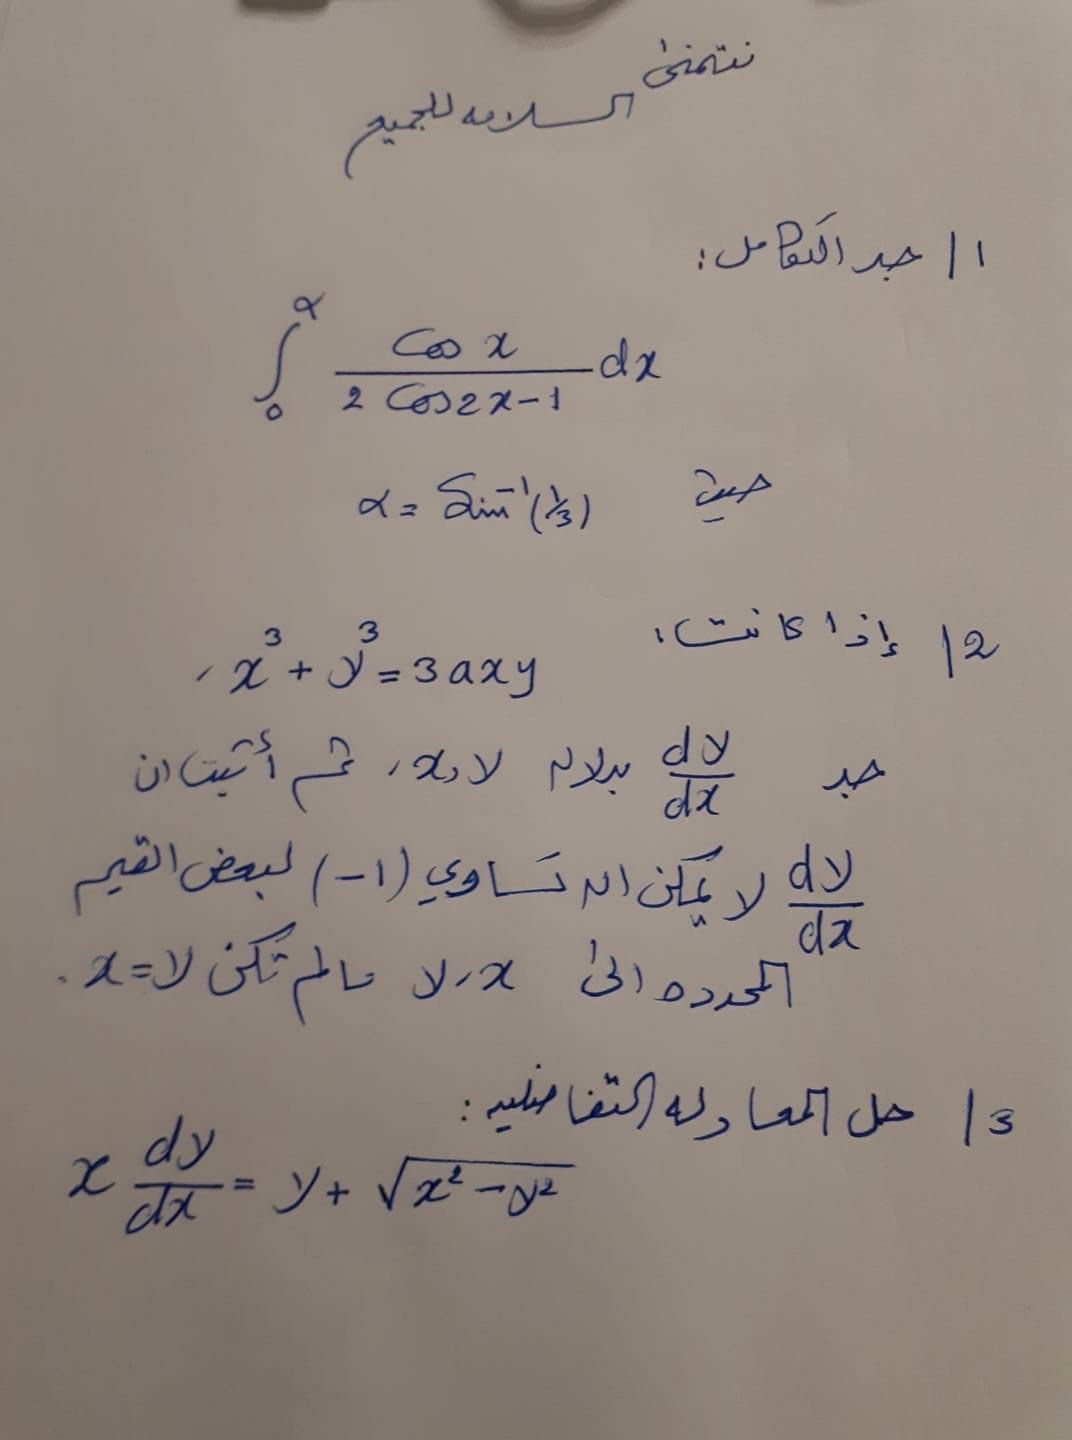 نتمنى
السلامه للجميع
1/ جد التكامل:
∫₀^α cos x / (2 cos 2x - 1) dx
حيث α = Sin⁻¹(1/3)
2/ إذا كانت:
x³ + y³ = 3axy،
جد dy/dx بدلالة x، y، ثم أثبت ان
dy/dx لا يمكن ان تساوي (-1) لبعض القيم
المحدده الى x، y مالم تكن y=x.
3/ حل المعادله التفاضليه:
x dy/dx = y + √(x² - y²)